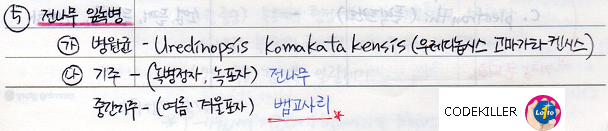 ⑤ 전나무 잎녹병
㉮ 병원균 - Uredinopsis komakatakensis (우레디놉시스 코마가타켄시스)
㉯ 기주 - (녹병정자, 녹포자) 전나무
중간기주 - (여름, 겨울포자) 뱀고사리 *
CODEKILLER Lotto